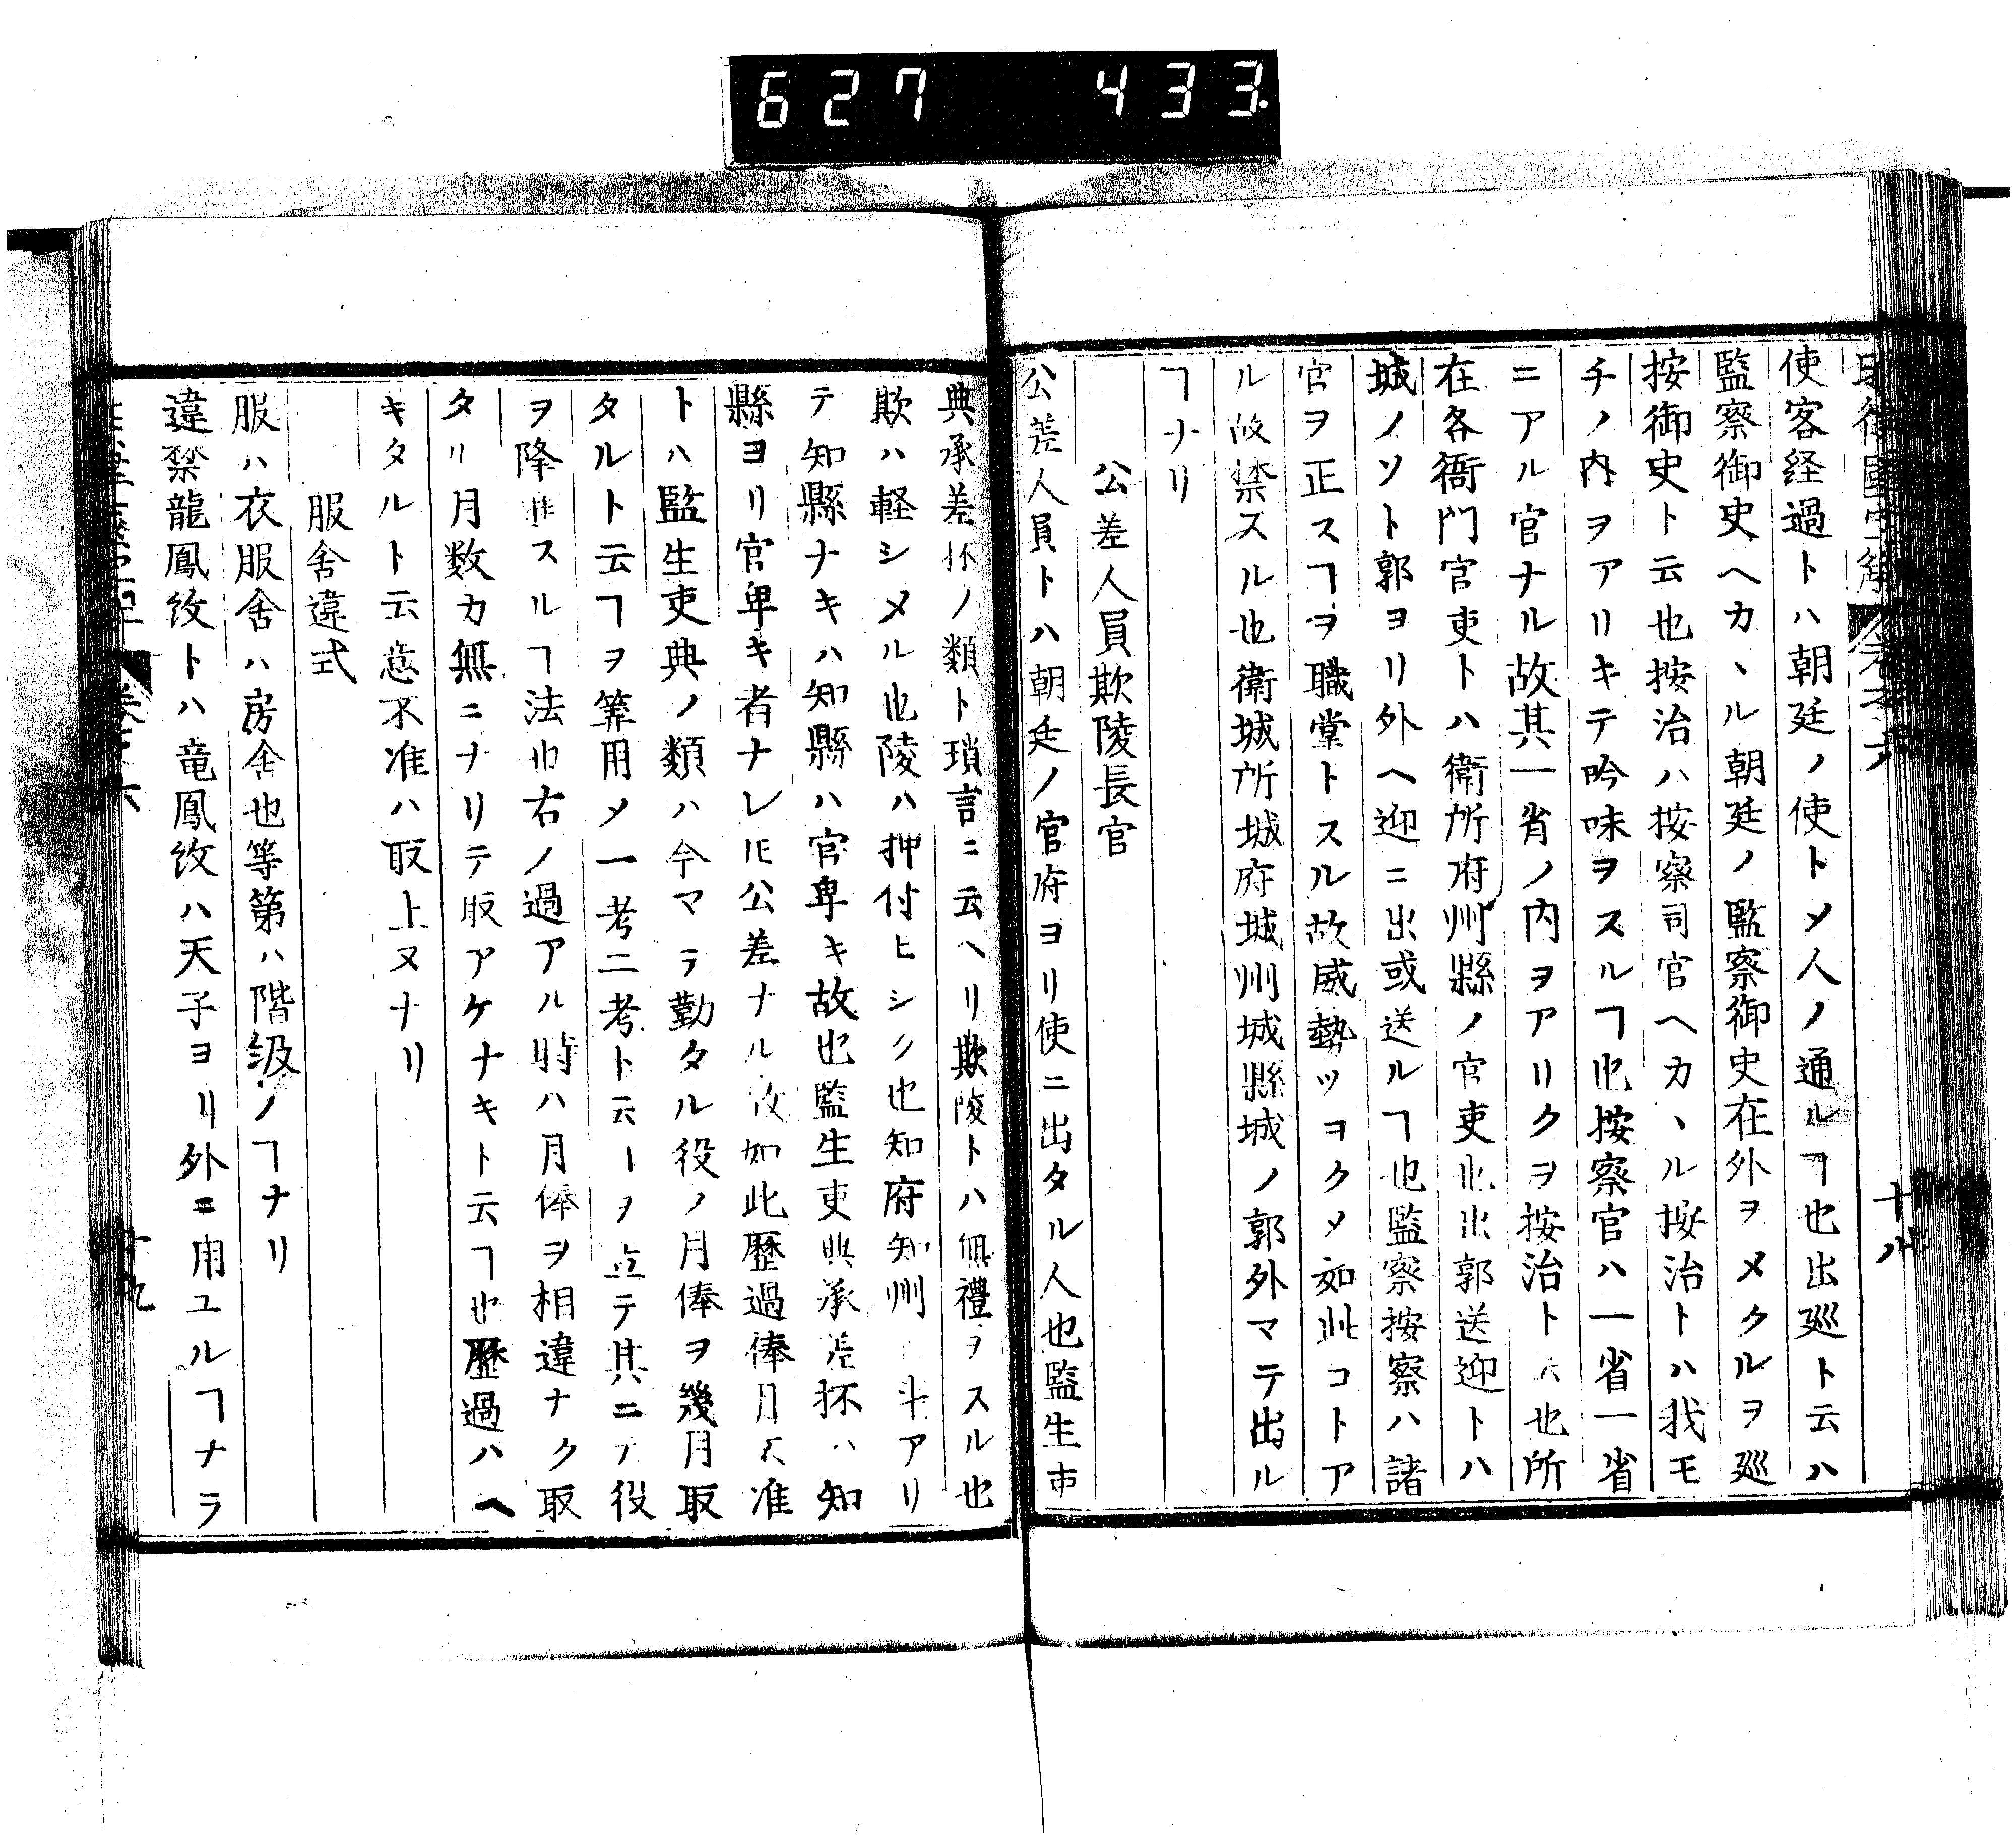 627 433
使客経過トハ朝廷ノ使トメ人ノ通ルヿ也出廵ト云ハ
監察御史ヘカヽル朝廷ノ監察御史在外ヲメクルヲ廵
按御史ト云也按治ハ按察司官ヘカヽル按治トハ我モ
チノ内ヲアリキテ吟味ヲスルヿ也按察官ハ一省一省
ニアル官ナル故其一省ノ内ヲアリクヲ按治ト云也所
在各衙門官吏トハ衛所府州縣ノ官吏也出郭送迎トハ
城ノソト郭ヨリ外ヘ迎ニ出或送ルヿ也監察按察ハ諸
官ヲ正スヿヲ職掌トスル故威勢ツヨクメ如此コトア
ル故禁スル也衛城所城府城州城縣城ノ郭外マテ出ル
ヿナリ
公差人員欺陵長官
公差人員トハ朝廷ノ官府ヨリ使ニ出タル人也監生吏
典承差抔ノ類ト瑣言ニ云ヘリ欺陵トハ無禮ヲスル也
欺ハ軽シメル也陵ハ押付ヒシク也知府知州斗アリ
テ知縣ナキハ知縣ハ官卑キ故也監生吏典承差抔ハ知
縣ヨリ官卑キ者ナレ𪜈公差ナル故如此歴過俸月不准
トハ監生吏典ノ類ハ今マテ勤タル役ノ月俸ヲ幾月取
タルト云ヿヲ筭用メ一考二考ト云ーヲ立テ其ニテ役
ヲ降陞スルヿ法也右ノ過アル時ハ月俸ヲ相違ナク取
タリ月数カ無ニナリテ取アケナキト云ヿ也歴過ハヘ
キタルト云意不准ハ取上ヌナリ
服舍違式
服ハ衣服舍ハ房舍也等第ハ階級ノヿナリ
違禁龍鳳紋トハ竜鳳紋ハ天子ヨリ外ニ用ユルヿナラ